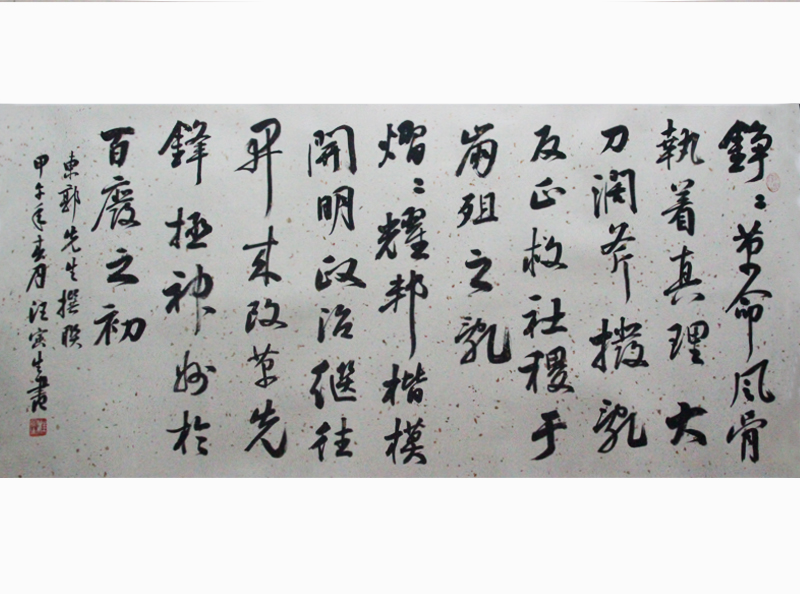 錚〻革命風骨
執着真理大
刀闊斧撥亂
反正救社稷于
崩殂之亂
熠〻耀邦楷模
開明政治繼往
开來改革先
鋒拯神州於
百廢之初
東郭先生撰联
甲午年春月汪寅生書